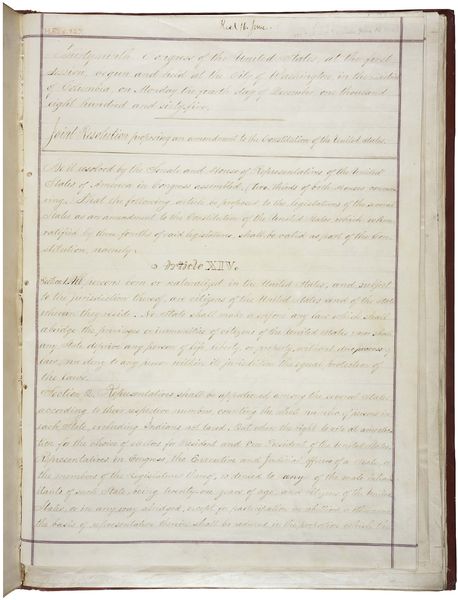 Thirty-ninth Congress of the United States, at the first
session, begun and held at the City of Washington, in the District
of Columbia, on Monday the fourth day of December, one thousand
eight hundred and sixty-five.
Joint Resolution proposing an amendment to the Constitution of the United States.
Be it resolved by the Senate and House of Representatives of the United
States of America in Congress assembled, (two thirds of both Houses concur-
ring,) That the following article be proposed to the legislatures of the several
States as an amendment to the Constitution of the United States, which, when
ratified by three fourths of said legislatures, shall be valid as part of the Con-
stitution, namely:
Article XIV.
Section 1. All persons born or naturalized in the United States, and subject
to the jurisdiction thereof, are citizens of the United States and of the State
wherein they reside. No State shall make or enforce any law which shall
abridge the privileges or immunities of citizens of the United States; nor shall
any State deprive any person of life, liberty, or property, without due process of
law; nor deny to any person within its jurisdiction the equal protection of
the laws.
Section 2. Representatives shall be apportioned among the several States
according to their respective numbers, counting the whole number of persons in
each State, excluding Indians not taxed. But when the right to vote at any elec-
tion for the choice of electors for President and Vice President of the United States,
Representatives in Congress, the Executive and Judicial officers of a State, or
the members of the Legislature thereof, is denied to any of the male inhabi-
tants of such State, being twenty-one years of age, and citizens of the United
States, or in any way abridged, except for participation in rebellion, or other crime,
the basis of representation therein shall be reduced in the proportion which the